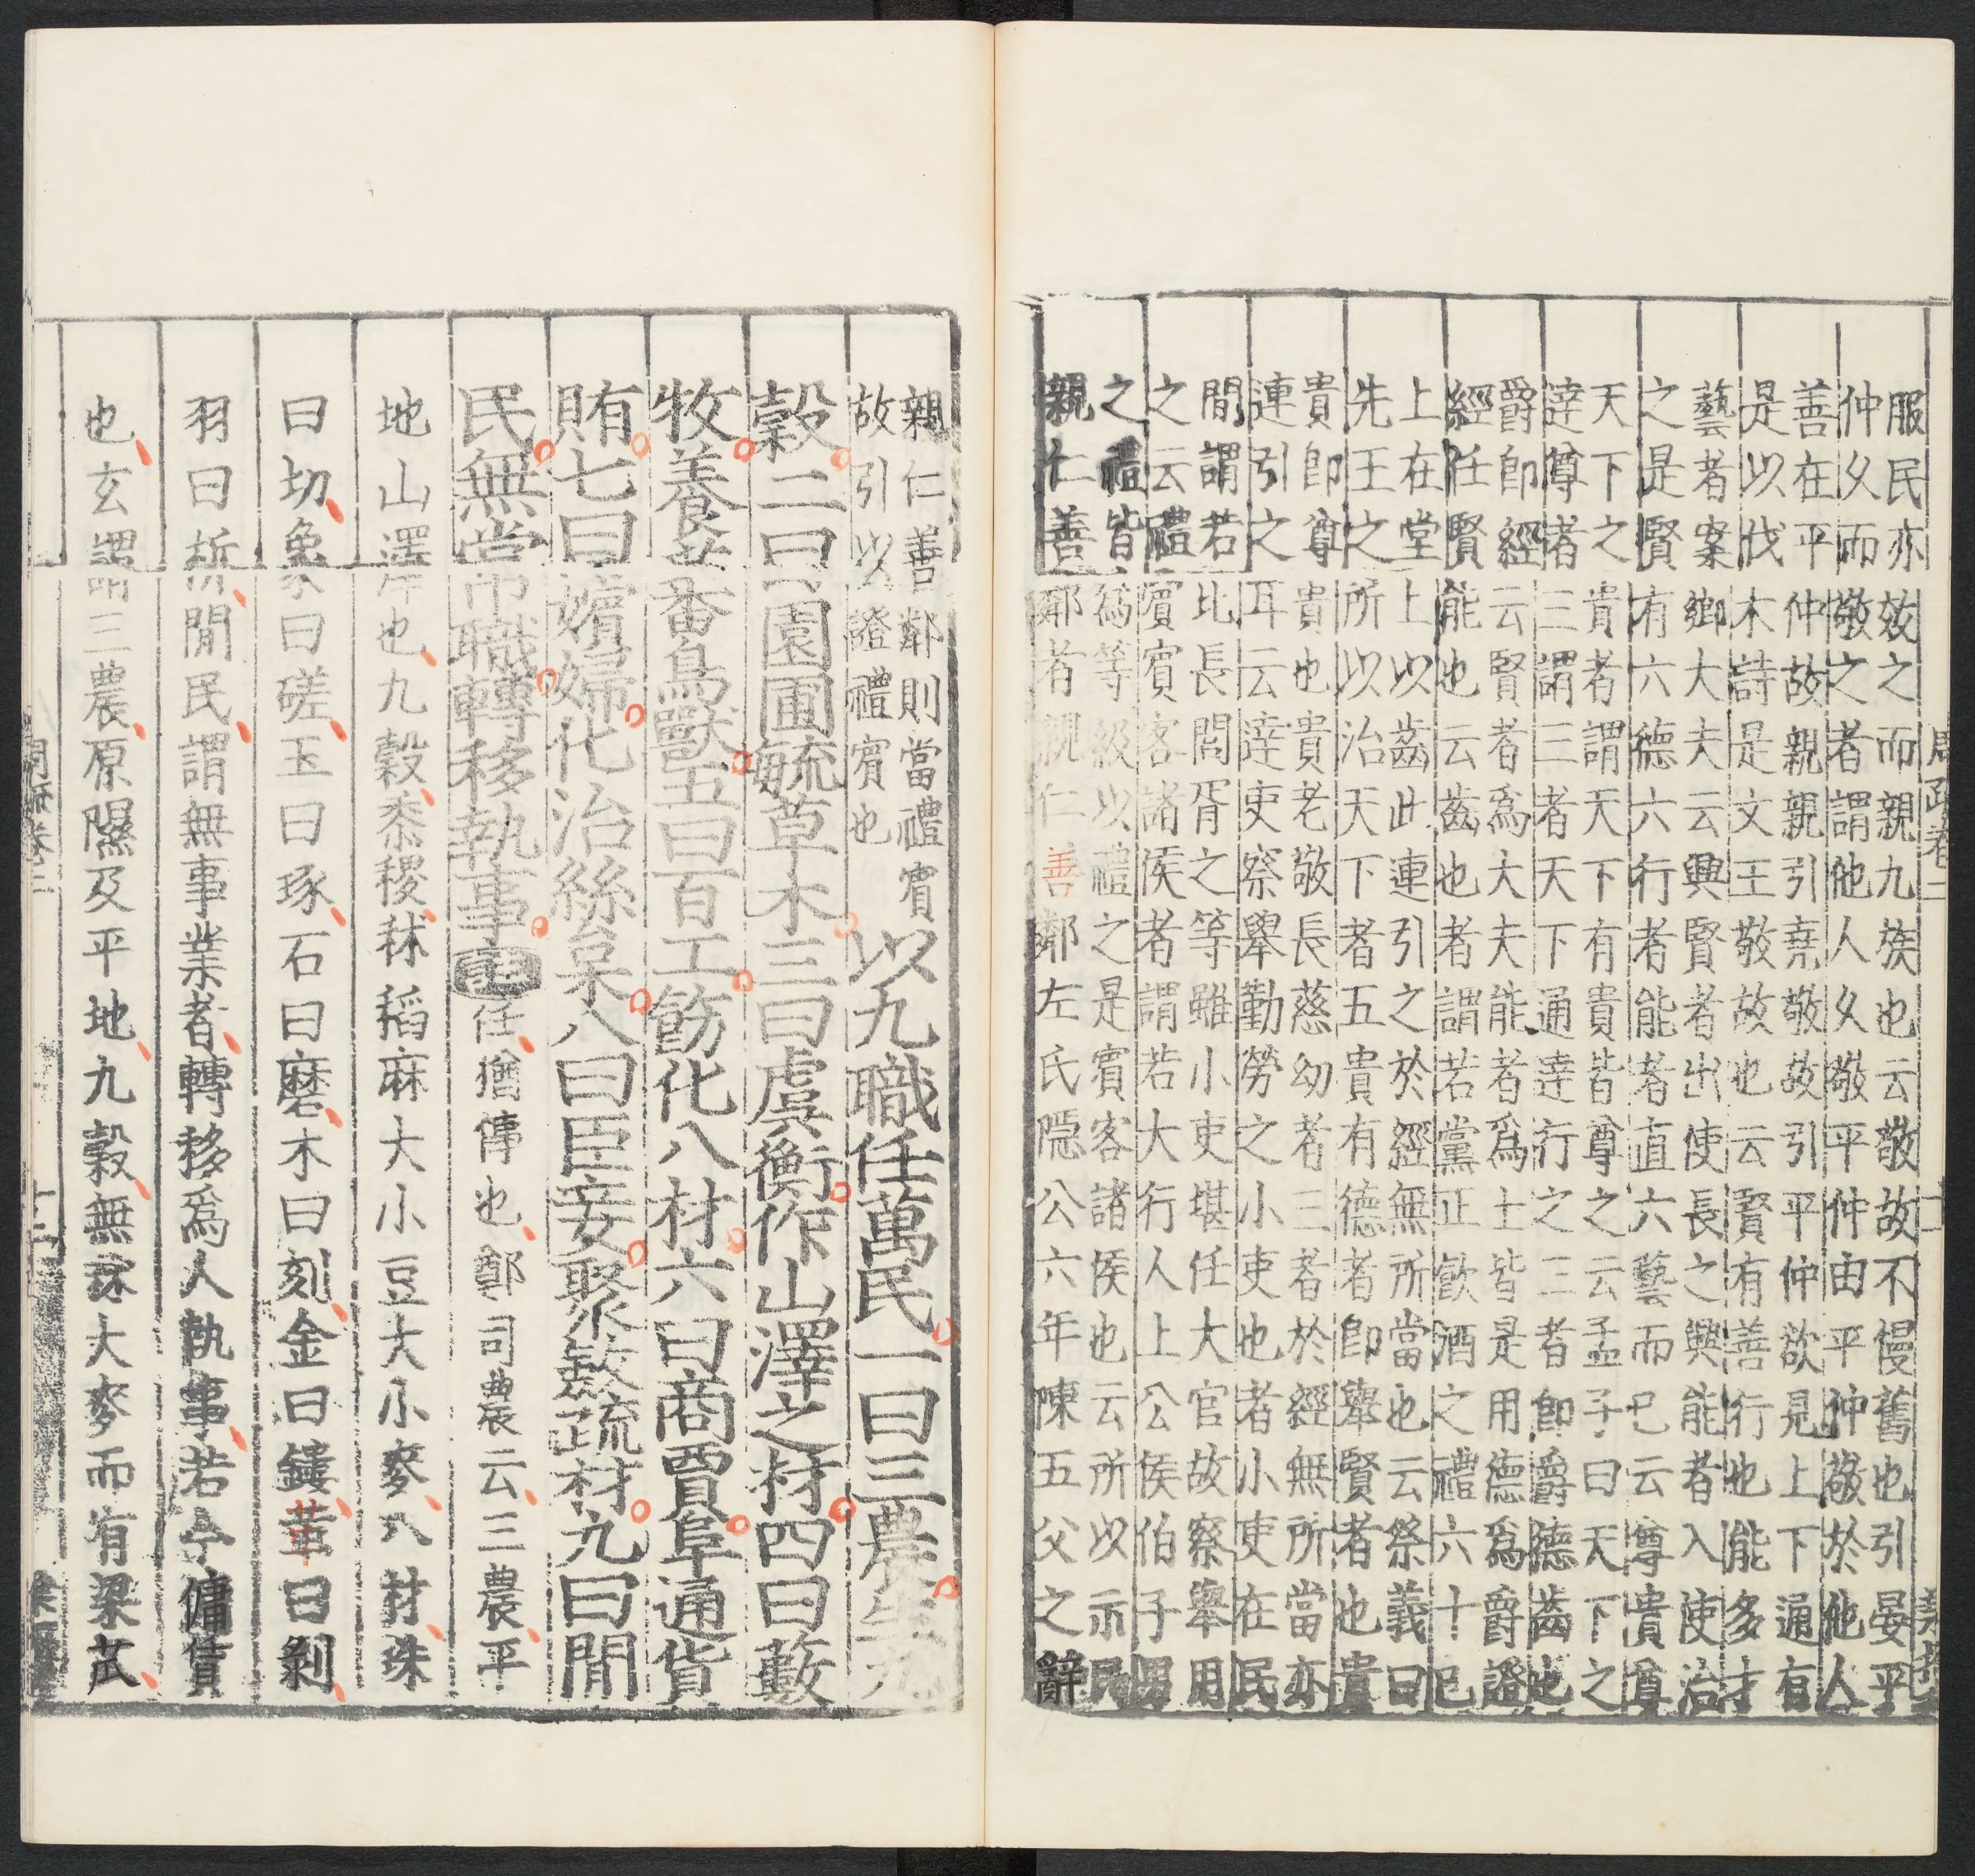 服民亦效之而親九族也云敬故不慢舊也引晏平
仲久而敬之者謂他人久敬平仲由平仲敬於他人
善在平仲故親親引堯敬故引平仲欲見上下通有
是以伐木詩是文王敬故也云賢有善行也能多才
藝者案鄉大夫云興賢者出使長之興能者入使治
之是賢有六德六行者能者直六藝而已云尊貴尊
天下之貴者謂天下有貴皆尊之云孟子曰天下之
達尊者三謂三者天下通達行之三者即爵德齒也
爵即經云賢者爲大夫能者爲士皆是用德爲爵證
經任賢能也云齒也者謂若黨正飮酒之禮六十已
上在堂上以齒此連引之於經無所當也云祭義曰
先王之所以治天下者五貴有德者即舉賢者也貴
貴即尊貴也貴老敬長慈幼者三者於經無所當亦
連引之耳云達吏察舉勤勞之小吏也者小吏在民
間謂若比長閭胥之等雖小吏堪任大官故察舉用
之云禮賓賓客諸侯者謂若大行人上公侯伯子男
之禮皆爲等級以禮之是賓客諸侯也云所以示民
親仁善鄰者親仁善鄰左氏隱公六年陳五父之辭
周疏卷二
十一
親仁善鄰則當禮賓
故引以證禮賓也
以九職任萬民一曰三農生九
穀二曰園圃毓草木三曰虞衡作山澤之材四曰藪
牧養蕃鳥獸五曰百工飭化八材六曰商賈阜通貨
賄七曰嬪婦化治絲枲八曰臣妾聚斂疏材九曰閒
民無常職轉移執事
任猶傳也鄭司農云三農平
地山澤也九穀黍稷秫稻麻大小豆大小麥八材珠
曰切象曰磋玉曰琢石曰磨木曰刻金曰鏤革曰剝
羽曰析閒民謂無事業者轉移爲人執事若今傭賃
也玄謂三農原隰及平地九穀無秫大麥而有梁苽
周疏卷二
十二